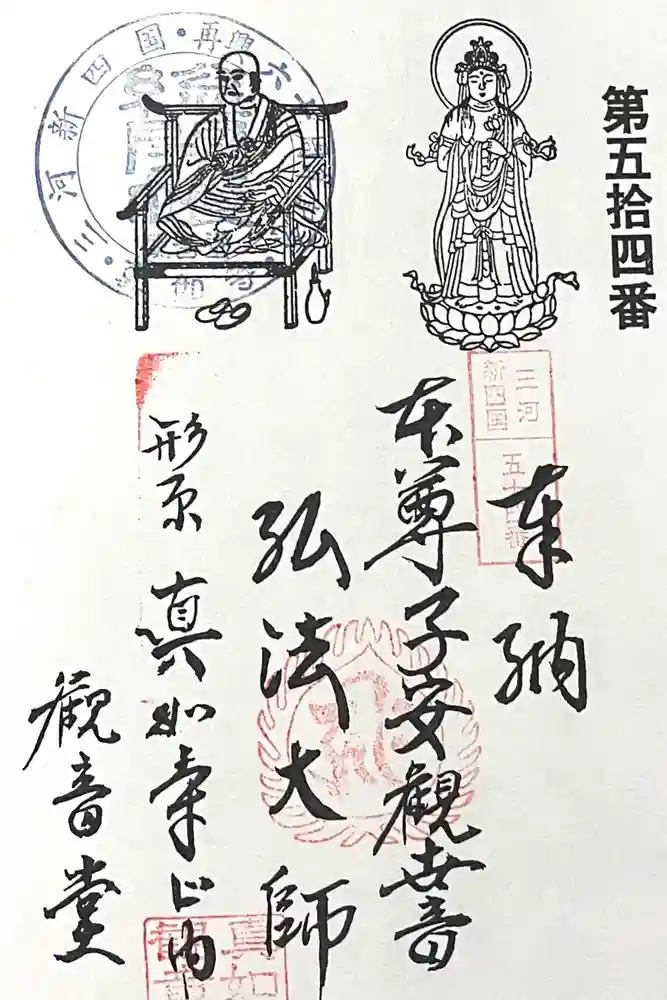 第五拾四番
奉納
本尊子安觀世音
弘法大師
形原 真如寺山内
觀音堂
三河
新四国
五十四番
三河新四国・再興六十
真如
観音